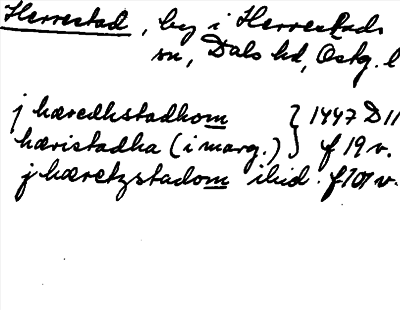 Herrestad, by i Herrestads
sn, Dals hd, Östg. l
j hæredhstadhom } 1447 D 11
hæristadha (i marg.) } f 19 v.
j hæretzstadom ibid. f 101 v.